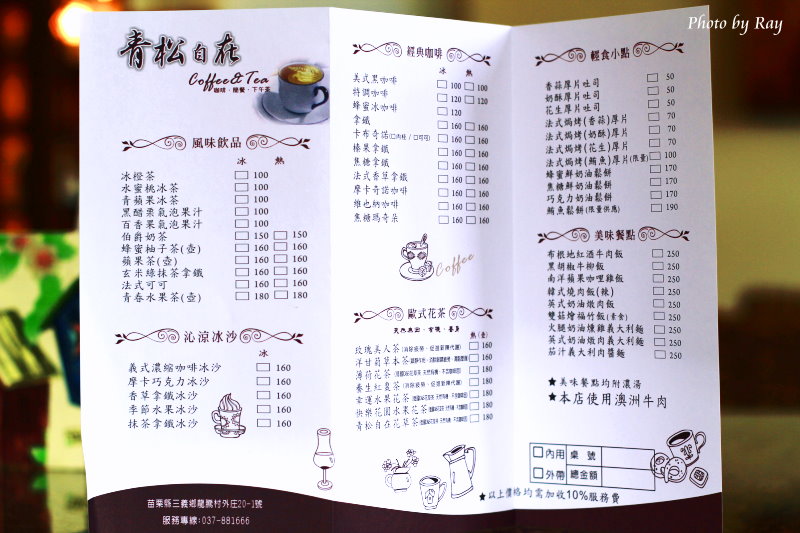 Photo by Ray
青松自在
Coffee&Tea
咖啡．簡餐．下午茶
風味飲品
冰 熱
冰橙茶 100
水蜜桃冰茶 100
青蘋果冰茶 100
黑醋栗氣泡果汁 100
百香果氣泡果汁 100
伯爵奶茶 150 150
蜂蜜柚子茶(壺) 160 160
蘋果茶(壺) 160 160
玄米綠抹茶拿鐵 160 160
法式可可 160 160
青春水果茶(壺) 180 180
沁涼冰沙
冰
義式濃縮咖啡冰沙 160
摩卡巧克力冰沙 160
香草拿鐵冰沙 160
季節水果冰沙 160
抹茶拿鐵冰沙 160
苗栗縣三義鄉龍騰村外庄20-1號
服務專線:037-881666
經典咖啡
冰 熱
美式黑咖啡 100 100
特調咖啡 120 120
蜂蜜冰咖啡 120
拿鐵 160 160
卡布奇諾(□肉桂 / □可可) 160 160
榛果拿鐵 160 160
焦糖拿鐵 160 160
法式香草拿鐵 160 160
摩卡奇諾咖啡 160 160
維也納咖啡 160 160
焦糖瑪奇朵 160 160
Coffee
歐式花茶
天然無毒．有機．養身
熱(壺)
玫瑰美人茶(消除疲勞．促進新陳代謝) 160
洋甘菊草本茶 160
薄荷花茶 180
養生紅棗茶(消除疲勞．促進新陳代謝) 180
幸運水果花茶 180
快樂花園水果花茶 180
青松自在花草茶 180
輕食小點
香蒜厚片吐司 50
奶酥厚片吐司 50
花生厚片吐司 50
法式焗烤(香蒜)厚片 70
法式焗烤(奶酥)厚片 70
法式焗烤(花生)厚片 70
法式焗烤(鮪魚)厚片(限量) 100
蜂蜜鮮奶油鬆餅 170
焦糖鮮奶油鬆餅 170
巧克力奶油鬆餅 170
鮪魚鬆餅(限量供應) 190
美味餐點
布根地紅酒牛肉飯 250
黑胡椒牛柳飯 250
南洋蘋果咖哩雞飯 250
韓式燒肉飯(辣) 250
英式奶油燉肉飯 250
雙菇燴福竹飯(素食) 250
火腿奶油燻雞義大利麵 250
英式奶油燉肉義大利麵 250
茄汁義大利肉醬麵 250
★美味餐點均附濃湯
★本店使用澳洲牛肉
□內用 桌 號
□外帶 總金額
★以上價格均需加收10%服務費